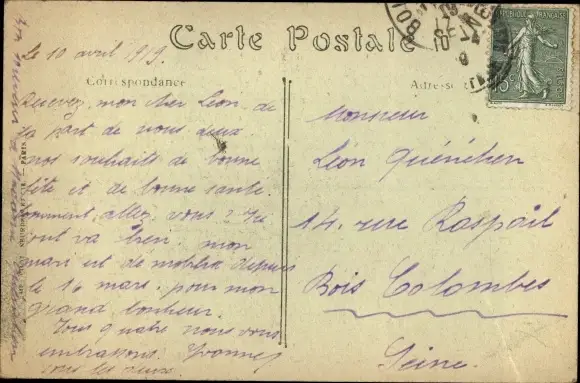 Carte Postale
le 10 avril 1919.
Correspondance
Recevez, mon cher Léon, de
la part de nous deux
nos souhaits de bonne
fête et de bonne santé.
Comment allez vous ? Ici
tout va bien. mon
mari est démobilisé depuis
le 14 mars. pour mon
grand bonheur.
Tous quatre nous vous
embrassons. Yvonne
Monsieur
Léon
14, rue Raspail
Bois Colombes
Seine.
REPUBLIQUE FRANÇAISE
PARIS